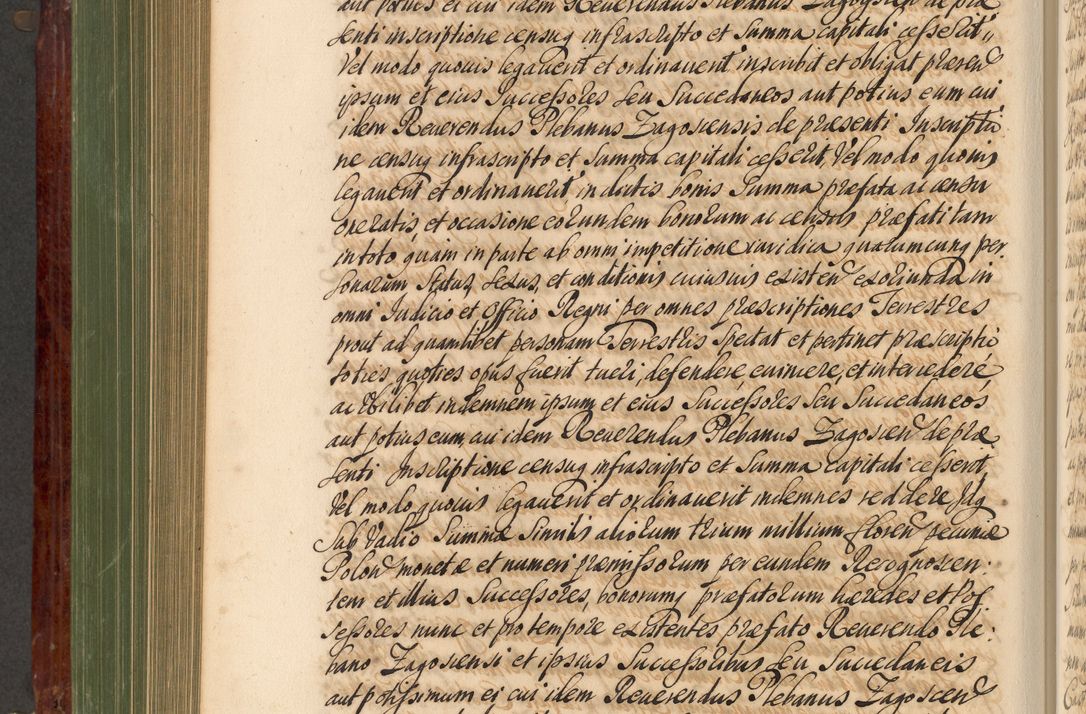 aut potius ei cui idem Reverendus Plebanus Zagoscien de præ
senti inscriptione censuq infrascripto et Summa capitali cesserit,,
Vel modo quovis legaverit et ordinaverit inscribit et obligat præsen
ipsum et eius Successores seu Succedaneos aut potius eum cui
idem Reverendus Plebanus Zagosciensis de præsenti Inscriptio
ne censuq infrascripto et Summa capitali cesserit, Vel modo quovis
legaverit et ordinaverit in dictis bonis Summa præfata ac censu
oneratis, et occasione eorundem bonorum ac census præfati tam
in toto quam in parte ab omni impetitione iuridica quarumcunq per
sonarum Status, sexus, et conditionis cuiusvis existen exoriunda in
omni Iudicio et Officio Regni per omnes præscriptiones Terrestres
prout ad quamlibet personam Terrestris spectat et pertinet præscriptio
toties, quoties opus fuerit tueri, defendere, evincere, et intercedere
ac ubilibet indemnem ipsum et eius Successores seu Succedaneos
aut potius eum, cui idem Reverendus Plebanus Zagoscien de præ
senti Inscriptione censuq infrascripto et Summa capitali cesserit,
Vel modo quovis legaverit et ordinaverit indemnes reddere Idq
Sub Vadio Summæ Similis aliorum trium millium floren pecuniæ
Polon monetæ et numeri præmissorum per eundem Recognoscen
tem et illius Successores, bonorumq præfatorum hæredes et Pos
sessores nunc et pro tempore existentes præfato Reverendo Ple:
bano Zagosciensi et ipsius Successoribus seu Succedaneis
aut potissimum ei cui idem Reverendus Plebanus Zagoscien